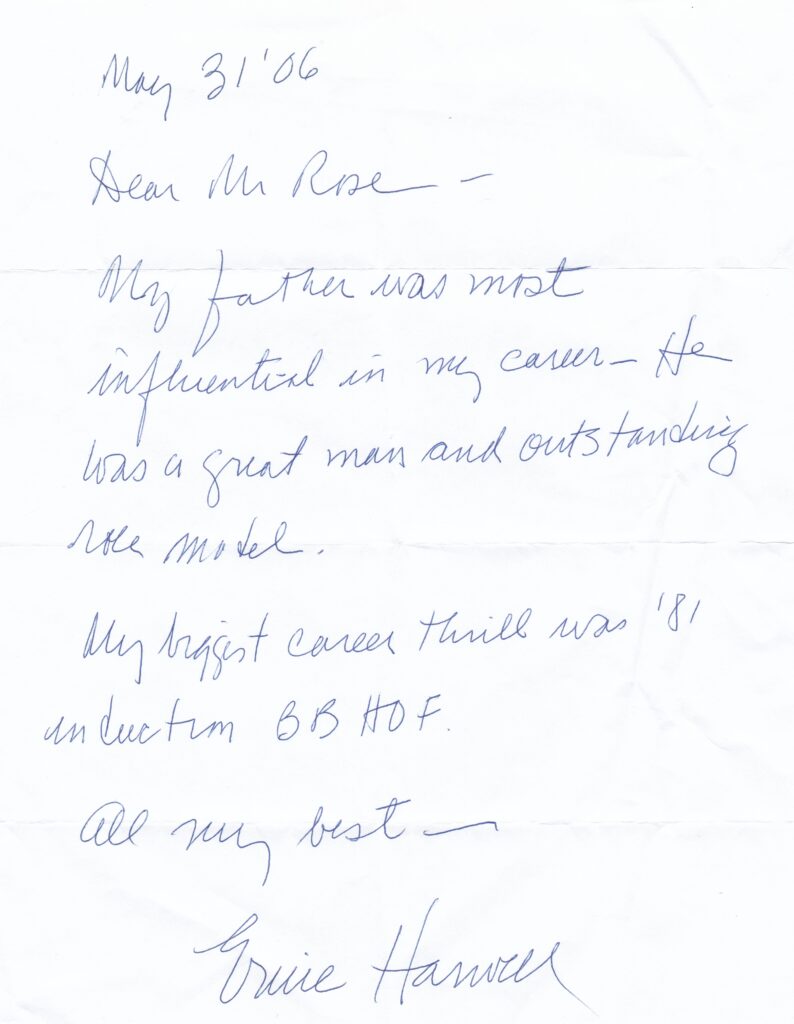 May 31 '06
Dear Mr Rose –
My father was most
influential in my career – He
was a great man and outstanding
role model.
My biggest career thrill was '81
induction BB HOF.
All my best —
Ernie Harwell